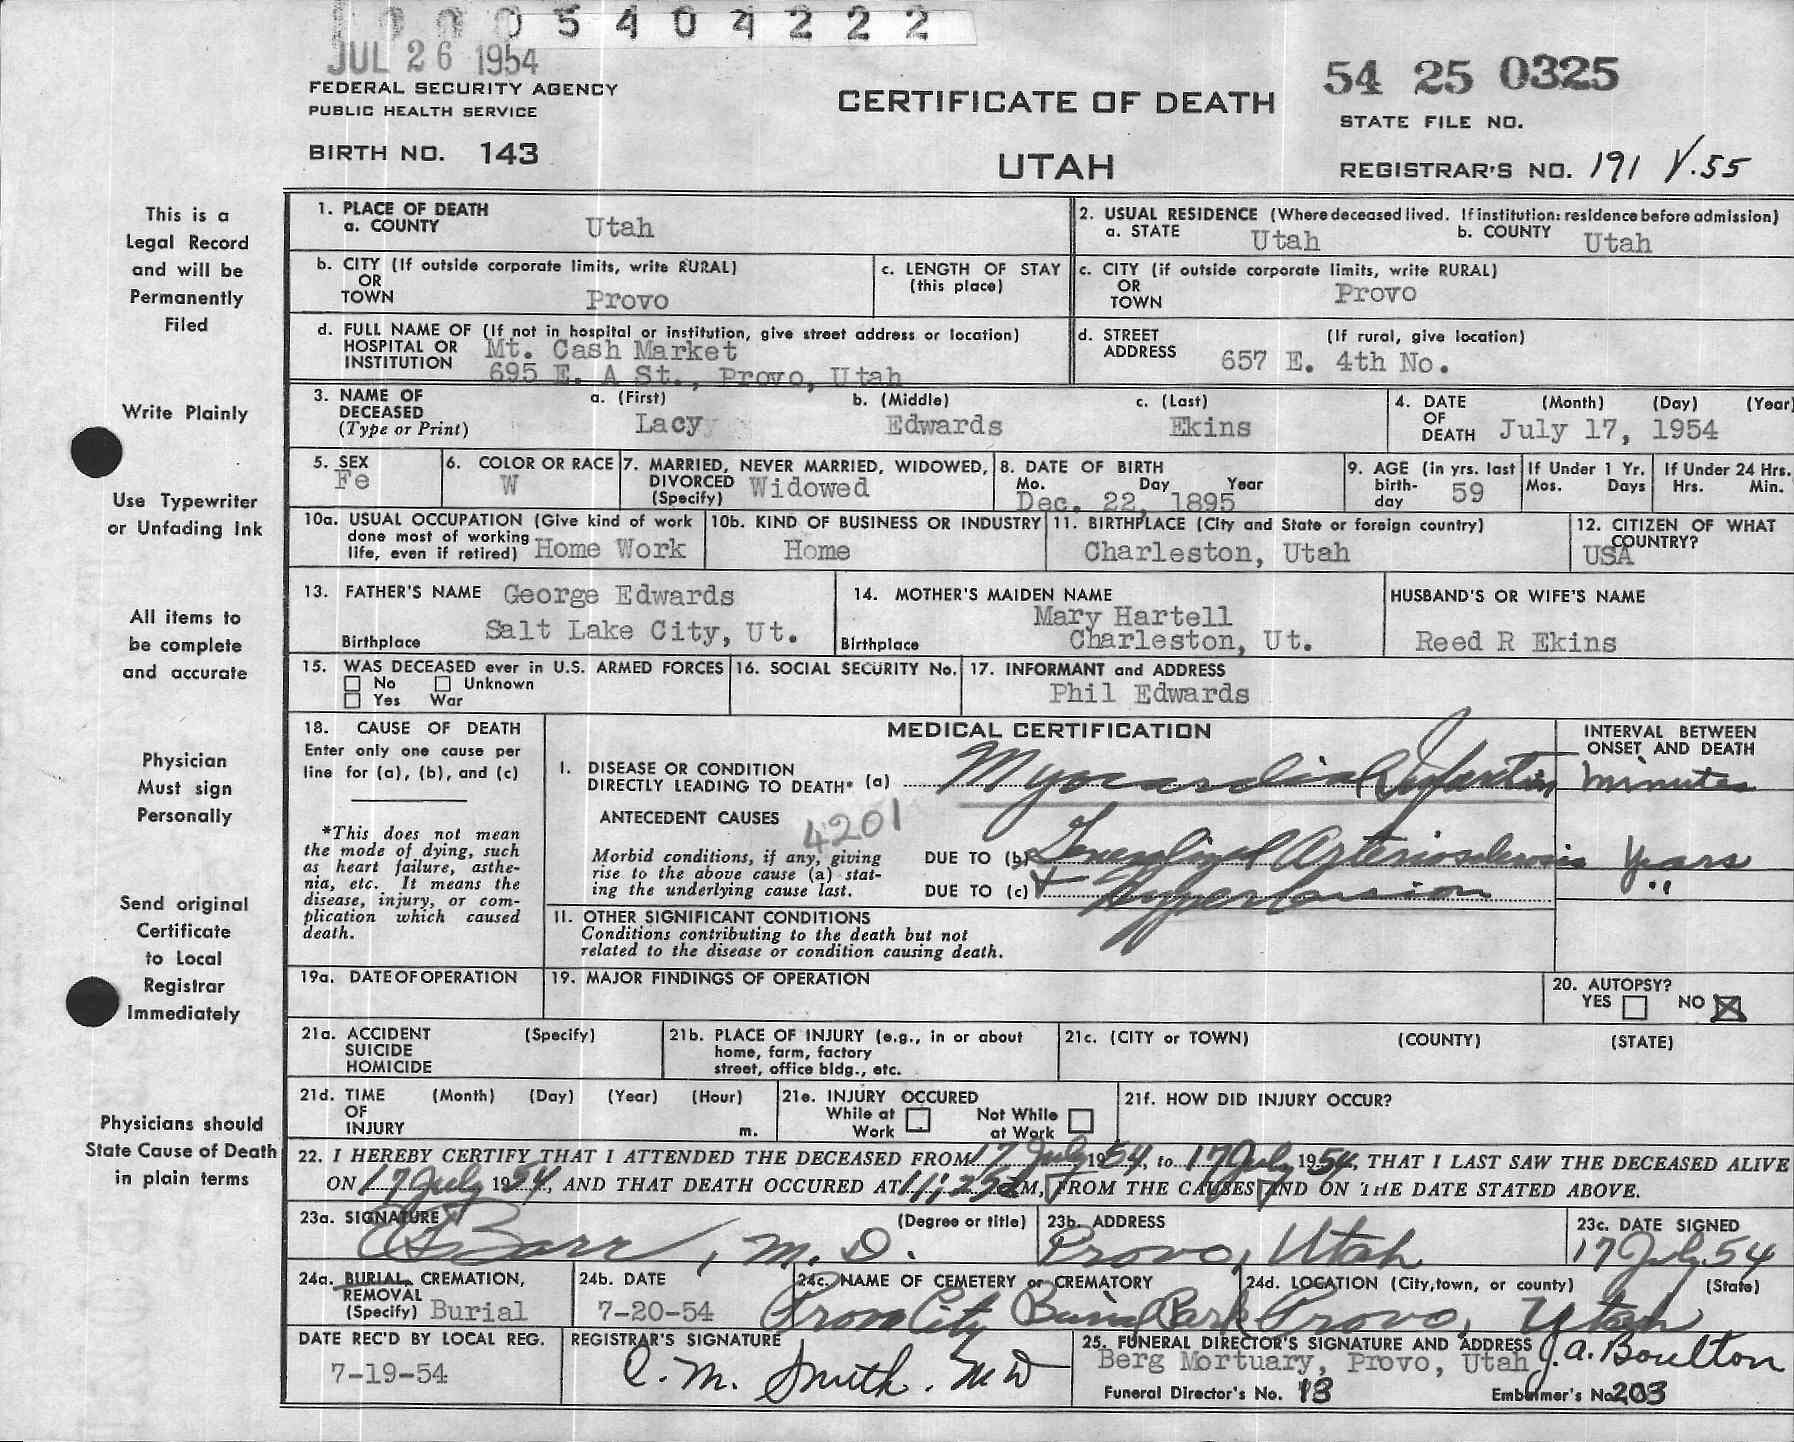 5404222
JUL 26 1954
FEDERAL SECURITY AGENCY
PUBLIC HEALTH SERVICE
BIRTH NO. 143
CERTIFICATE OF DEATH
UTAH
54 25 0325
STATE FILE NO.
REGISTRAR'S NO. 191 V.55
This is a
Legal Record
and will be
Permanently
Filed
Write Plainly
Use Typewriter
or Unfading Ink
All items to
be complete
and accurate
Physician
Must sign
Personally
Send original
Certificate
to Local
Registrar
Immediately
Physicians should
State Cause of Death
in plain terms
1. PLACE OF DEATH
a. COUNTY Utah
2. USUAL RESIDENCE (Where deceased lived. If institution: residence before admission)
a. STATE Utah b. COUNTY Utah
b. CITY (If outside corporate limits, write RURAL)
OR
TOWN Provo
c. LENGTH OF STAY
(this place)
c. CITY (if outside corporate limits, write RURAL)
OR
TOWN Provo
d. FULL NAME OF (If not in hospital or institution, give street address or location)
HOSPITAL OR Mt. Cash Market
INSTITUTION 695 E. A St., Provo, Utah
d. STREET (If rural, give location)
ADDRESS 657 E. 4th No.
3. NAME OF a. (First) b. (Middle) c. (Last)
DECEASED
(Type or Print) Lacy Edwards Ekins
4. DATE (Month) (Day) (Year)
OF
DEATH July 17, 1954
5. SEX
Fe
6. COLOR OR RACE
W
7. MARRIED, NEVER MARRIED, WIDOWED,
DIVORCED Widowed
(Specify)
8. DATE OF BIRTH
Mo. Day Year
Dec. 22, 1895
9. AGE (in yrs. last
birth-
day 59
If Under 1 Yr.
Mos. Days
If Under 24 Hrs.
Hrs. Min.
10a. USUAL OCCUPATION (Give kind of work
done most of working
life, even if retired) Home Work
10b. KIND OF BUSINESS OR INDUSTRY
Home
11. BIRTHPLACE (City and State or foreign country)
Charleston, Utah
12. CITIZEN OF WHAT
COUNTRY?
USA
13. FATHER'S NAME George Edwards
Birthplace Salt Lake City, Ut.
14. MOTHER'S MAIDEN NAME
Mary Hartell
Birthplace Charleston, Ut.
HUSBAND'S OR WIFE'S NAME
Reed R Ekins
15. WAS DECEASED ever in U.S. ARMED FORCES
No Unknown
Yes War
16. SOCIAL SECURITY No.
17. INFORMANT and ADDRESS
Phil Edwards
18. CAUSE OF DEATH
Enter only one cause per
line for (a), (b), and (c)
*This does not mean
the mode of dying, such
as heart failure, asthe-
nia, etc. It means the
disease, injury, or com-
plication which caused
death.
MEDICAL CERTIFICATION
INTERVAL BETWEEN
ONSET AND DEATH
I. DISEASE OR CONDITION
DIRECTLY LEADING TO DEATH* (a) Myocardial Infarction minutes
ANTECEDENT CAUSES
4201
Morbid conditions, if any, giving
rise to the above cause (a) stat-
ing the underlying cause last.
DUE TO (b) Generalized Arteriosclerosis years
DUE TO (c) + Hypertension "
II. OTHER SIGNIFICANT CONDITIONS
Conditions contributing to the death but not
related to the disease or condition causing death.
19a. DATE OF OPERATION
19. MAJOR FINDINGS OF OPERATION
20. AUTOPSY?
YES NO X
21a. ACCIDENT (Specify)
SUICIDE
HOMICIDE
21b. PLACE OF INJURY (e.g., in or about
home, farm, factory
street, office bldg., etc.
21c. (CITY or TOWN) (COUNTY) (STATE)
21d. TIME (Month) (Day) (Year) (Hour)
OF
INJURY m.
21e. INJURY OCCURED
While at Not While
Work at Work
21f. HOW DID INJURY OCCUR?
22. I HEREBY CERTIFY THAT I ATTENDED THE DECEASED FROM 17 July 1954, to 17 July 1954, THAT I LAST SAW THE DECEASED ALIVE
ON 17 July 1954, AND THAT DEATH OCCURED AT M, FROM THE CAUSES AND ON THE DATE STATED ABOVE.
23a. SIGNATURE (Degree or title)
Barr, M.D.
23b. ADDRESS
Provo, Utah
23c. DATE SIGNED
17 July 54
24a. BURIAL, CREMATION,
REMOVAL
(Specify) Burial
24b. DATE
7-20-54
24c. NAME OF CEMETERY or CREMATORY
Provo City Burial Park
24d. LOCATION (City, town, or county) (State)
Provo, Utah
DATE REC'D BY LOCAL REG.
7-19-54
REGISTRAR'S SIGNATURE
C. M. Smith. MD
25. FUNERAL DIRECTOR'S SIGNATURE AND ADDRESS
Berg Mortuary, Provo, Utah J.A. Boulton
Funeral Director's No. 13 Embalmer's No. 203